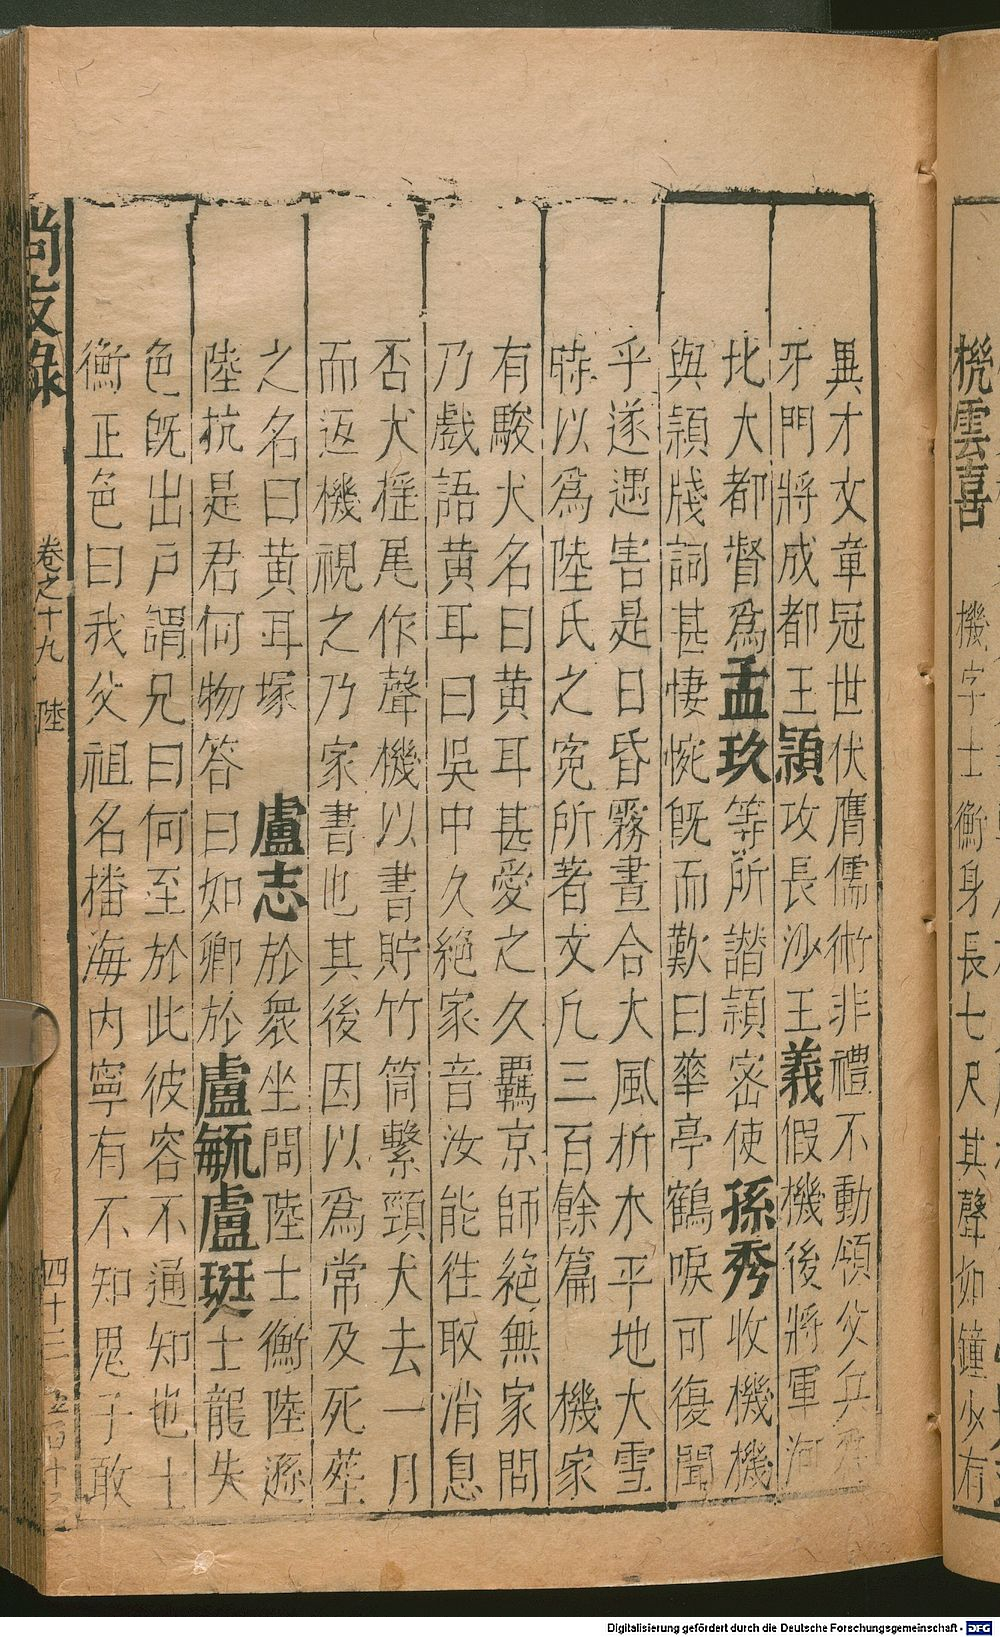 機雲喜 機字士衡身長七尺其聲如鐘少有
異才文章冠世伏膺儒術非禮不動領父兵爲
牙門將成都王穎攻長沙王義假機後將軍河
北大都督爲孟玖等所譖穎密使孫秀收機機
與穎牋詞甚悽惋旣而歎曰華亭鶴唳可復聞
乎遂遇害是日昏霧晝合大風折木平地大雪
時以爲陸氏之寃所著文凡三百餘篇 機家
有駿犬名曰黃耳甚愛之久羈京師絕無家問
乃戲語黃耳曰吳中久絕家音汝能往取消息
否犬搖尾作聲機以書貯竹筒繫頸犬去一月
而返機視之乃家書也其後因以爲常及死塟
之名曰黃耳塚 盧志於衆坐問陸士衡陸遜
陸抗是君何物答曰如卿於盧毓盧珽士龍失
色旣出戶謂兄曰何至於此彼容不通知也士
衡正色曰我父祖名播海內寧有不知鬼子敢
尚友錄 卷之十九 陸 四十三
Digitalisierung gefördert durch die Deutsche Forschungsgemeinschaft - DFG